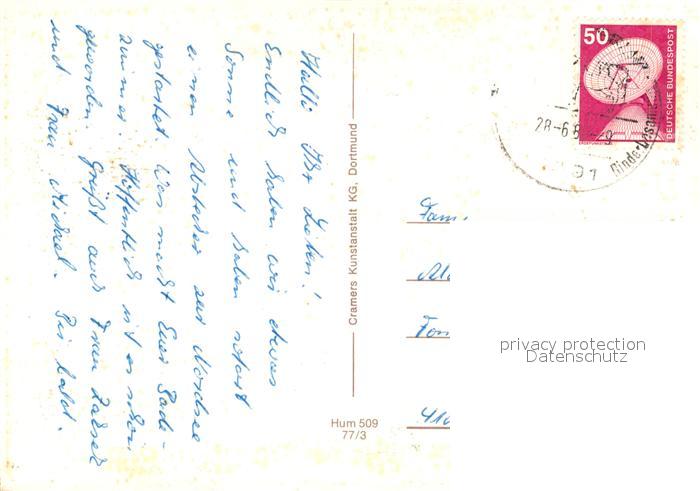 Hallo Ihr Lieben!
Endlich haben wir etwas
Sonne und haben sofort
einen Abstecher zur Nordsee
gestartet. Was macht Euer Bade-
zimmer? Hoffentlich ist es schon
geworden. Grüßt auch Frau
und Frau Michael. Bis bald.
Cramers Kunstanstalt KG. Dortmund
Hum 509
77/3
50
DEUTSCHE BUNDESPOST
28-6
Fam.
privacy protection
Datenschutz